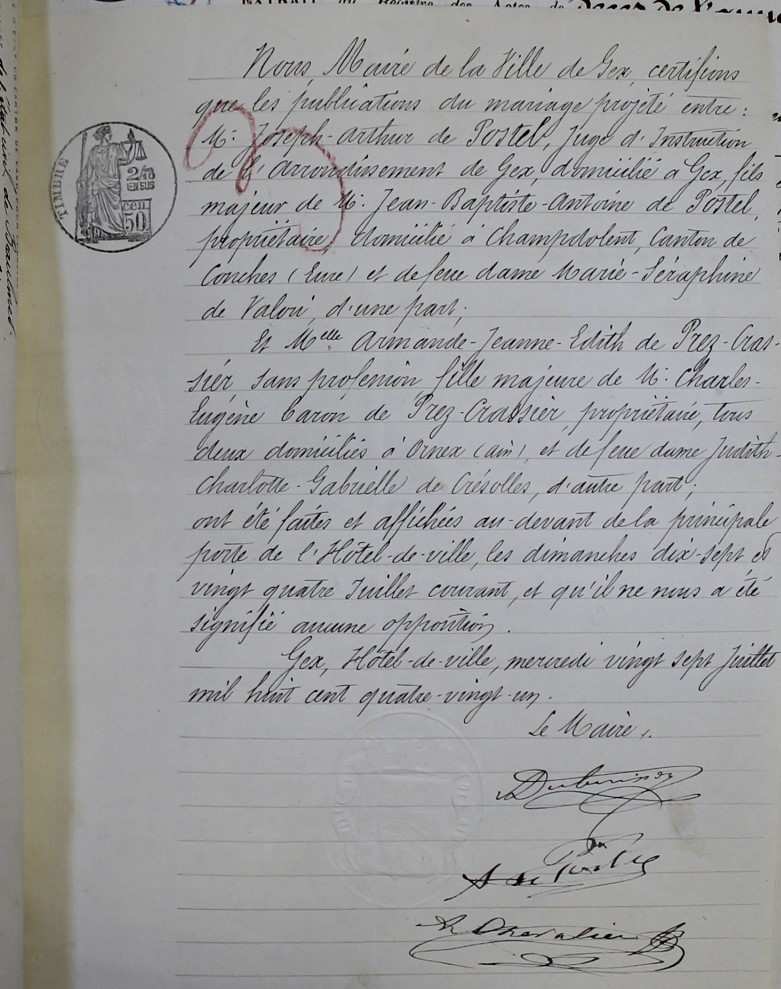 EXTRAIT du Registre des Actes de
Nous, Maire de la Ville de Gex, certifions
que les publications du mariage projeté entre:
Mr. Joseph-Arthur de Postel, Juge d'Instruction
de l'Arrondissement de Gex, domicilié à Gex, fils
majeur de Mr. Jean-Baptiste-Antoine de Postel,
propriétaire, domicilié à Champdolent, Canton de
Conches (Eure) et de feue dame Marie-Séraphine
de Valori, d'une part;
Et Melle Armande-Jeanne-Edith de Prez-Cras-
sier sans profession fille majeure de Mr. Charles-
Eugène baron de Prez-Crassier, propriétaire, tous
deux domiciliés à Ornex (ain), et de feue dame Judith-
Charlotte-Gabrielle de Crésolles, d'autre part;
ont été faites et affichées au-devant de la principale
porte de l'Hôtel-de-ville, les dimanches dix-sept et
vingt quatre Juillet courant, et qu'il ne nous a été
signifié aucune opposition.
Gex, Hôtel-de-ville, mercredi vingt sept Juillet
mil huit cent quatre-vingt-un.
Le Maire,
A de Postel
Chevalier
TIMBRE
2/10
EN SUS
CEN.
50